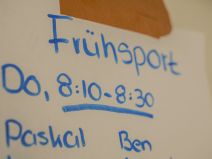 Frühsport
Do, 8:10-8:30
Paskal Ben